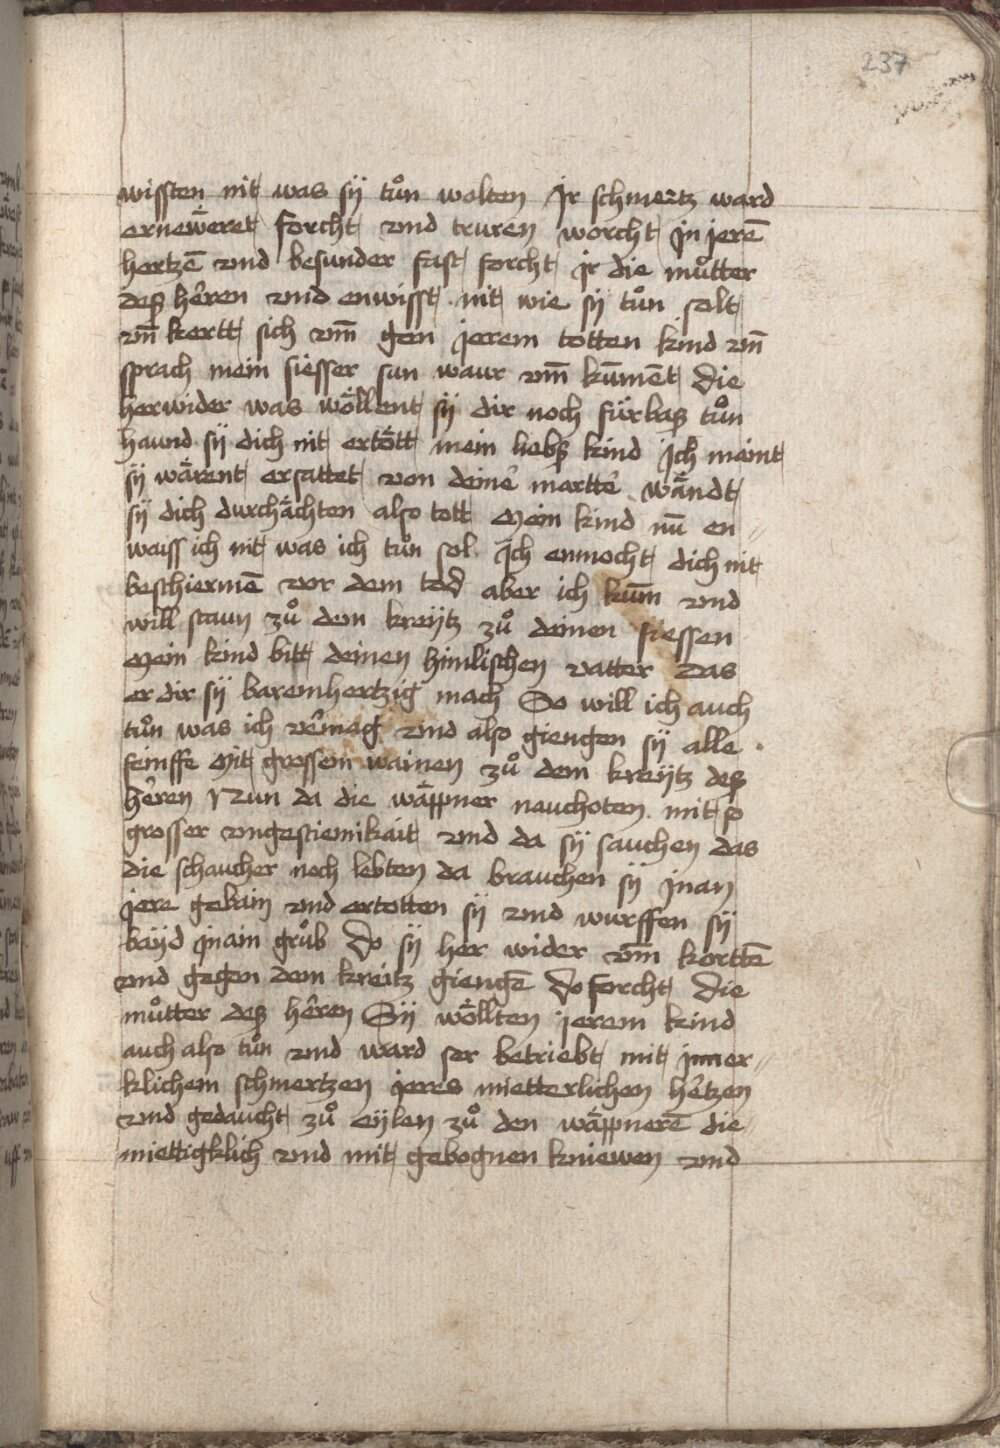 237
wissten nit was sÿ tůn wolten Jr schmertz ward
ernewe̋ret forcht vnd truren worcht jn jerē
hertzē vnd besunder fast forcht jr die můtter
deß hêren vnd enwisst nit wie sÿ tůn solt
vn̄ kertt sich vm̄ gen jerem totten kind vn̄
sprach mein siesser sun waur vm̄ kūment die
herwider was wöllent sÿ dir noch fürbaß tůn
haund sÿ dich nit ertött mein liebß kind Jch maint
sÿ wärent ersattet von deinê marttê wändt
sÿ dich durchächten also tott Mein kind nū en〃
waiss ich nit was ich tůn sol Jch enmocht dich nit
beschiermē vor dem tod aber ich kum̄ vnd
will staun zů dem kreÿtz zů deinen fiessen
Mein kind bitt deinen himlischen vatter das
er dir sÿ baremhertzig mach So will ich auch
tůn was ich vêmag vnd also giengen sÿ alle
feinffe Mit grossem wainen zů dem kreÿtz deß
hêren Nun da die wäppner nauchoten mit so
grosser vngestiemikait vnd da sÿ sauchen das
die schaucher noch lebten da brauchen sÿ jnan
jere gebain vnd ertotten sÿ vnd wurffen sÿ
baÿd jnain grůb Do sÿ her wider vm̄ korttē
vnd gegen dem kreitz giengē Do forcht die
můtter deß hêren Sÿ wöllten jerem kind
auch also tůn vnd ward ser betriebt mit jnner〃
klichem schmertzen jeres mietterlichen hêtzen
vnd gedaucht zů eÿlen zů den wäppnerē die〃
miettigklich vnd mit gebognen kniewen vnd